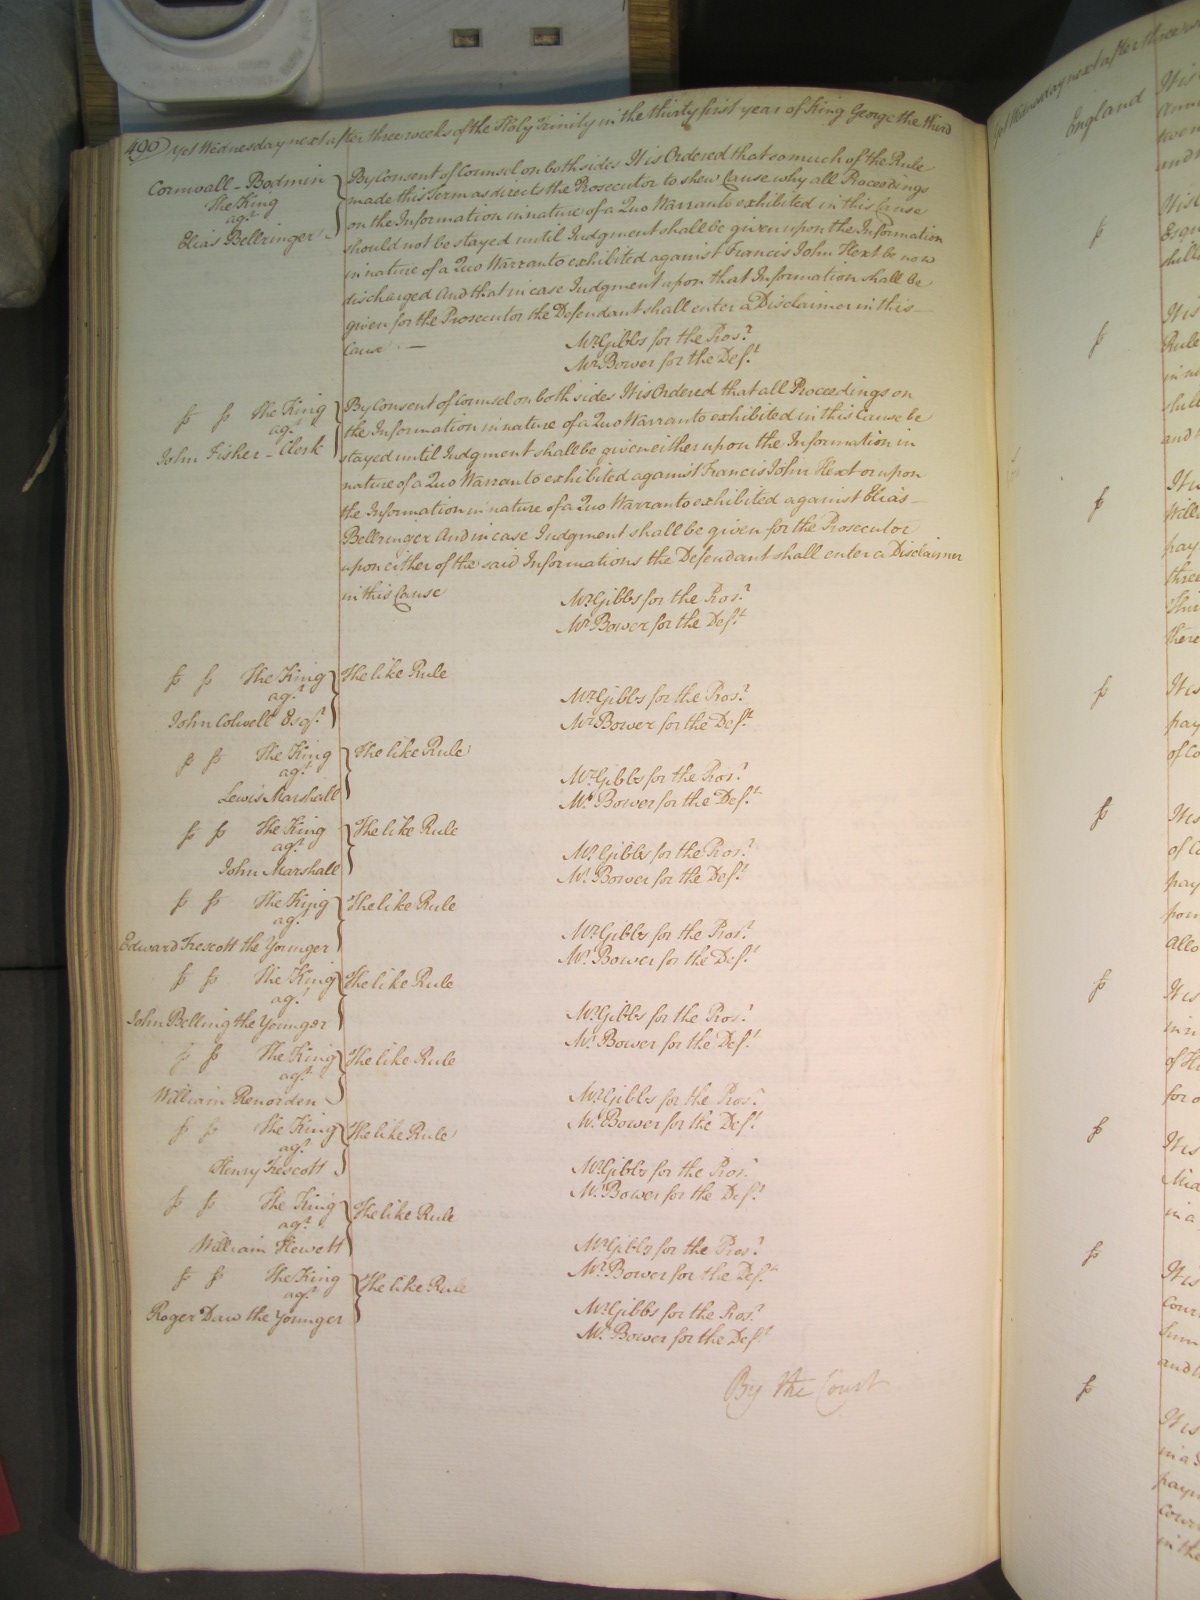 490 Yet Wednesday next after three weeks of the Holy Trinity in the thirty first year of King George the third
Cornwall - Bodmin
The King
agt
Elias Bellringer
By Consent of Counsel on both sides It is Ordered that so much of the Rule
made this Term as directs the Prosecutor to shew Cause why all Proceedings
on the Information in nature of a Quo Warranto exhibited in this Cause
should not be stayed until Judgment shall be given upon the Information
in nature of a Quo Warranto exhibited against Francis John Hext be now
discharged And that in case Judgment upon that Information shall be
given for the Prosecutor the Defendant shall enter a Disclaimer in this
Cause . —
Mr Gibbs for the Prosr
Mr Bower for the Deft
The King
agt
John Fisher - Clerk
By Consent of Counsel on both sides It is Ordered that all Proceedings on
the Information in nature of a Quo Warranto exhibited in this Cause be
stayed until Judgment shall be given either upon the Information in
nature of a Quo Warranto exhibited against Francis John Hext or upon
the Information in nature of a Quo Warranto exhibited against Elias
Bellringer And in case Judgment shall be given for the Prosecutor
upon either of the said Informations the Defendant shall enter a Disclaimer
in this Cause
Mr Gibbs for the Prosr
Mr Bower for the Deft
The King
agt
John Colwell Esqr
The like Rule
Mr Gibbs for the Prosr
Mr Bower for the Deft
The King
agt
Lewis Marshall
The like Rule
Mr Gibbs for the Prosr
Mr Bower for the Deft
The King
agt
John Marshall
The like Rule
Mr Gibbs for the Prosr
Mr Bower for the Deft
The King
agt
Edward Trescott the Younger
The like Rule
Mr Gibbs for the Prosr
Mr Bower for the Deft
The King
agt
John Belling the Younger
The like Rule
Mr Gibbs for the Prosr
Mr Bower for the Deft
The King
agt
William Renorden
The like Rule
Mr Gibbs for the Prosr
Mr Bower for the Deft
The King
agt
Henry Trescott
The like Rule
Mr Gibbs for the Prosr
Mr Bower for the Deft
The King
agt
William Hewett
The like Rule
Mr Gibbs for the Prosr
Mr Bower for the Deft
The King
agt
Roger Daw the Younger
The like Rule
Mr Gibbs for the Prosr
Mr Bower for the Deft
By the Court
Yet Wednesday next after three
England